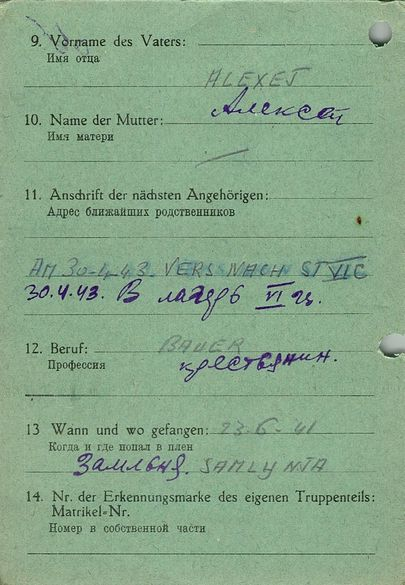 9. Vorname des Vaters:
Имя отца
ALEXEJ
Алексей
10. Name der Mutter:
Имя матери
11. Anschrift der nächsten Angehörigen:
Адрес ближайших родственников
AM 30.4.43. VERS. NACH ST VI C
30.4.43. В лагерь VI
12. Beruf: BAUER
Профессия крестьянин.
13 Wann und wo gefangen: 23.6-41
Когда и где попал в плен
SAMLYNIA
14. Nr. der Erkennungsmarke des eigenen Truppenteils:
Matrikel-Nr.
Номер в собственной части